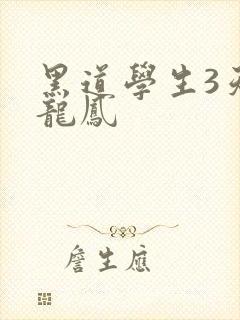 黑道學生3
龍鳳
詹生應